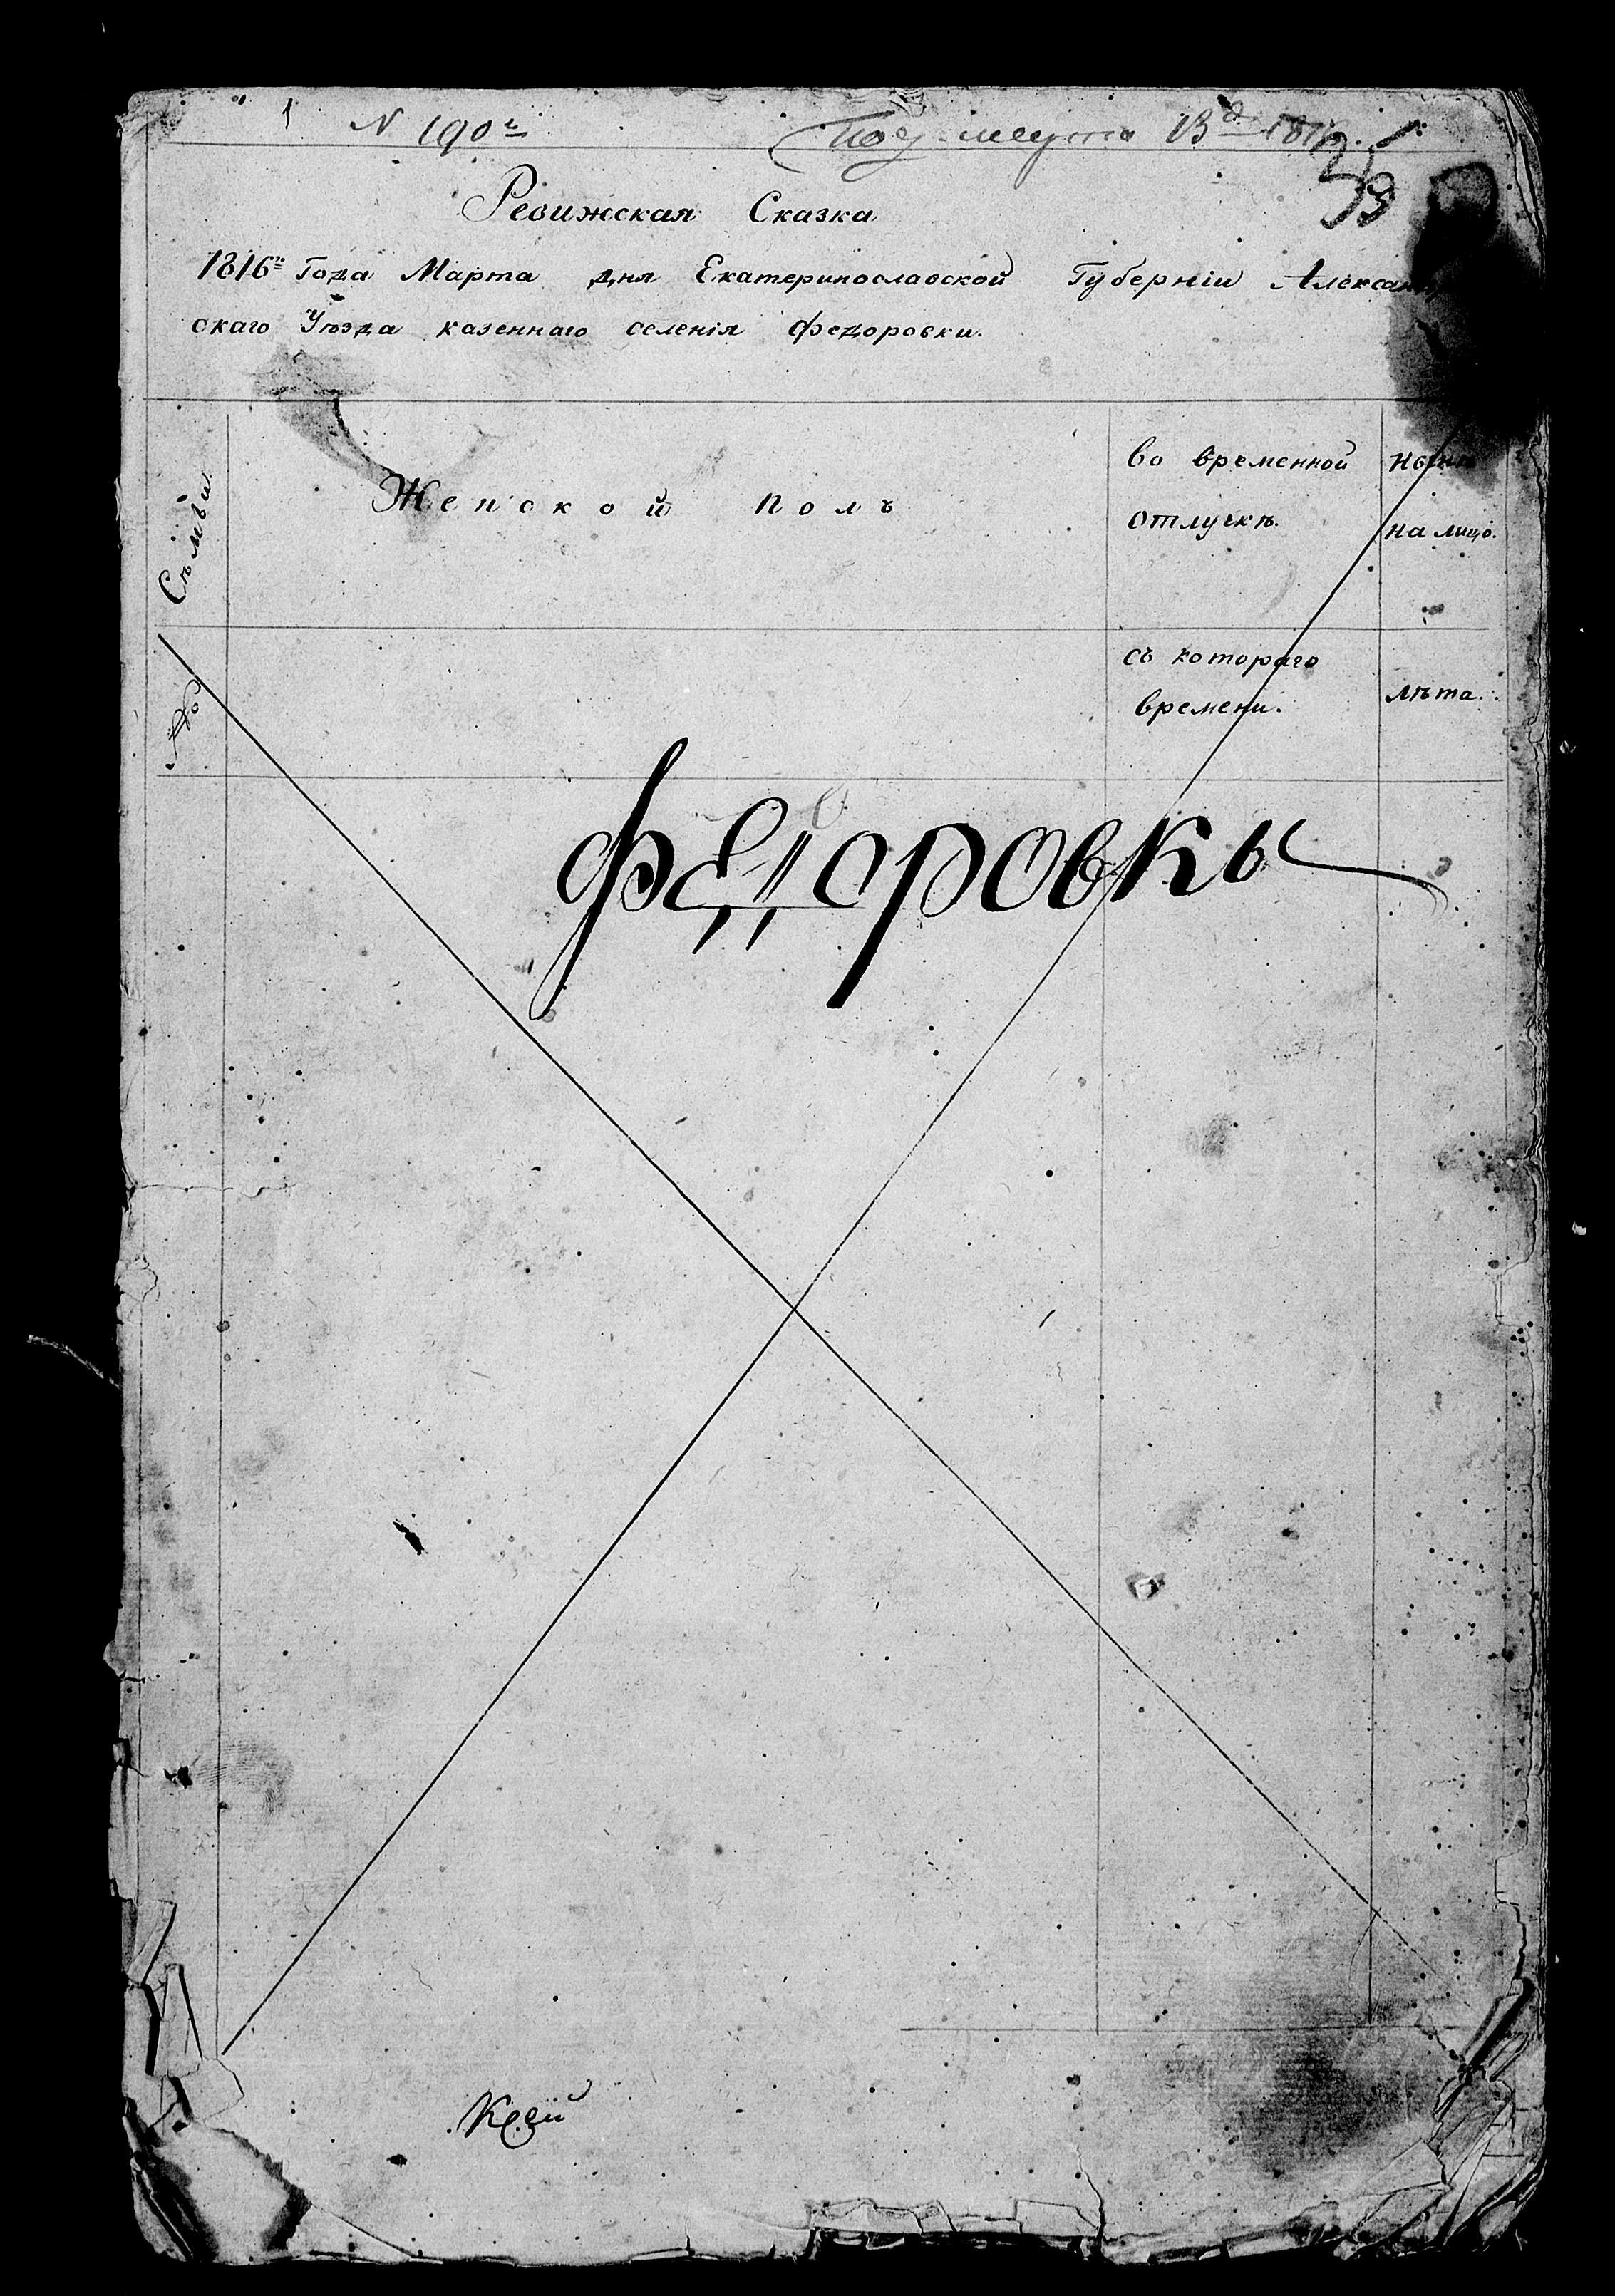 N 190й
Марта 13д 1816
Ревижская Сказка
1816го Года Марта дня Екатеринославской Губерніи Александ
скаго Уѣзда казеннаго селенія федоровки.
Сѣмьи
№
Женской полъ
во временной
отлучкѣ.
нынѣ
на лицо.
съ котораго
времени.
лѣта.
федоровки